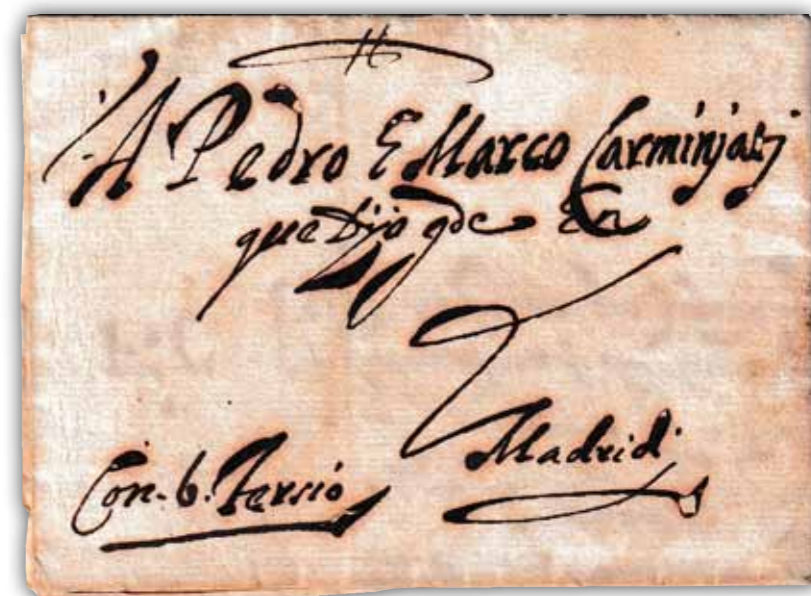 A Pedro E Marco Carminjatj
que Dio gde En
Madrid
Con. 6. Tersio